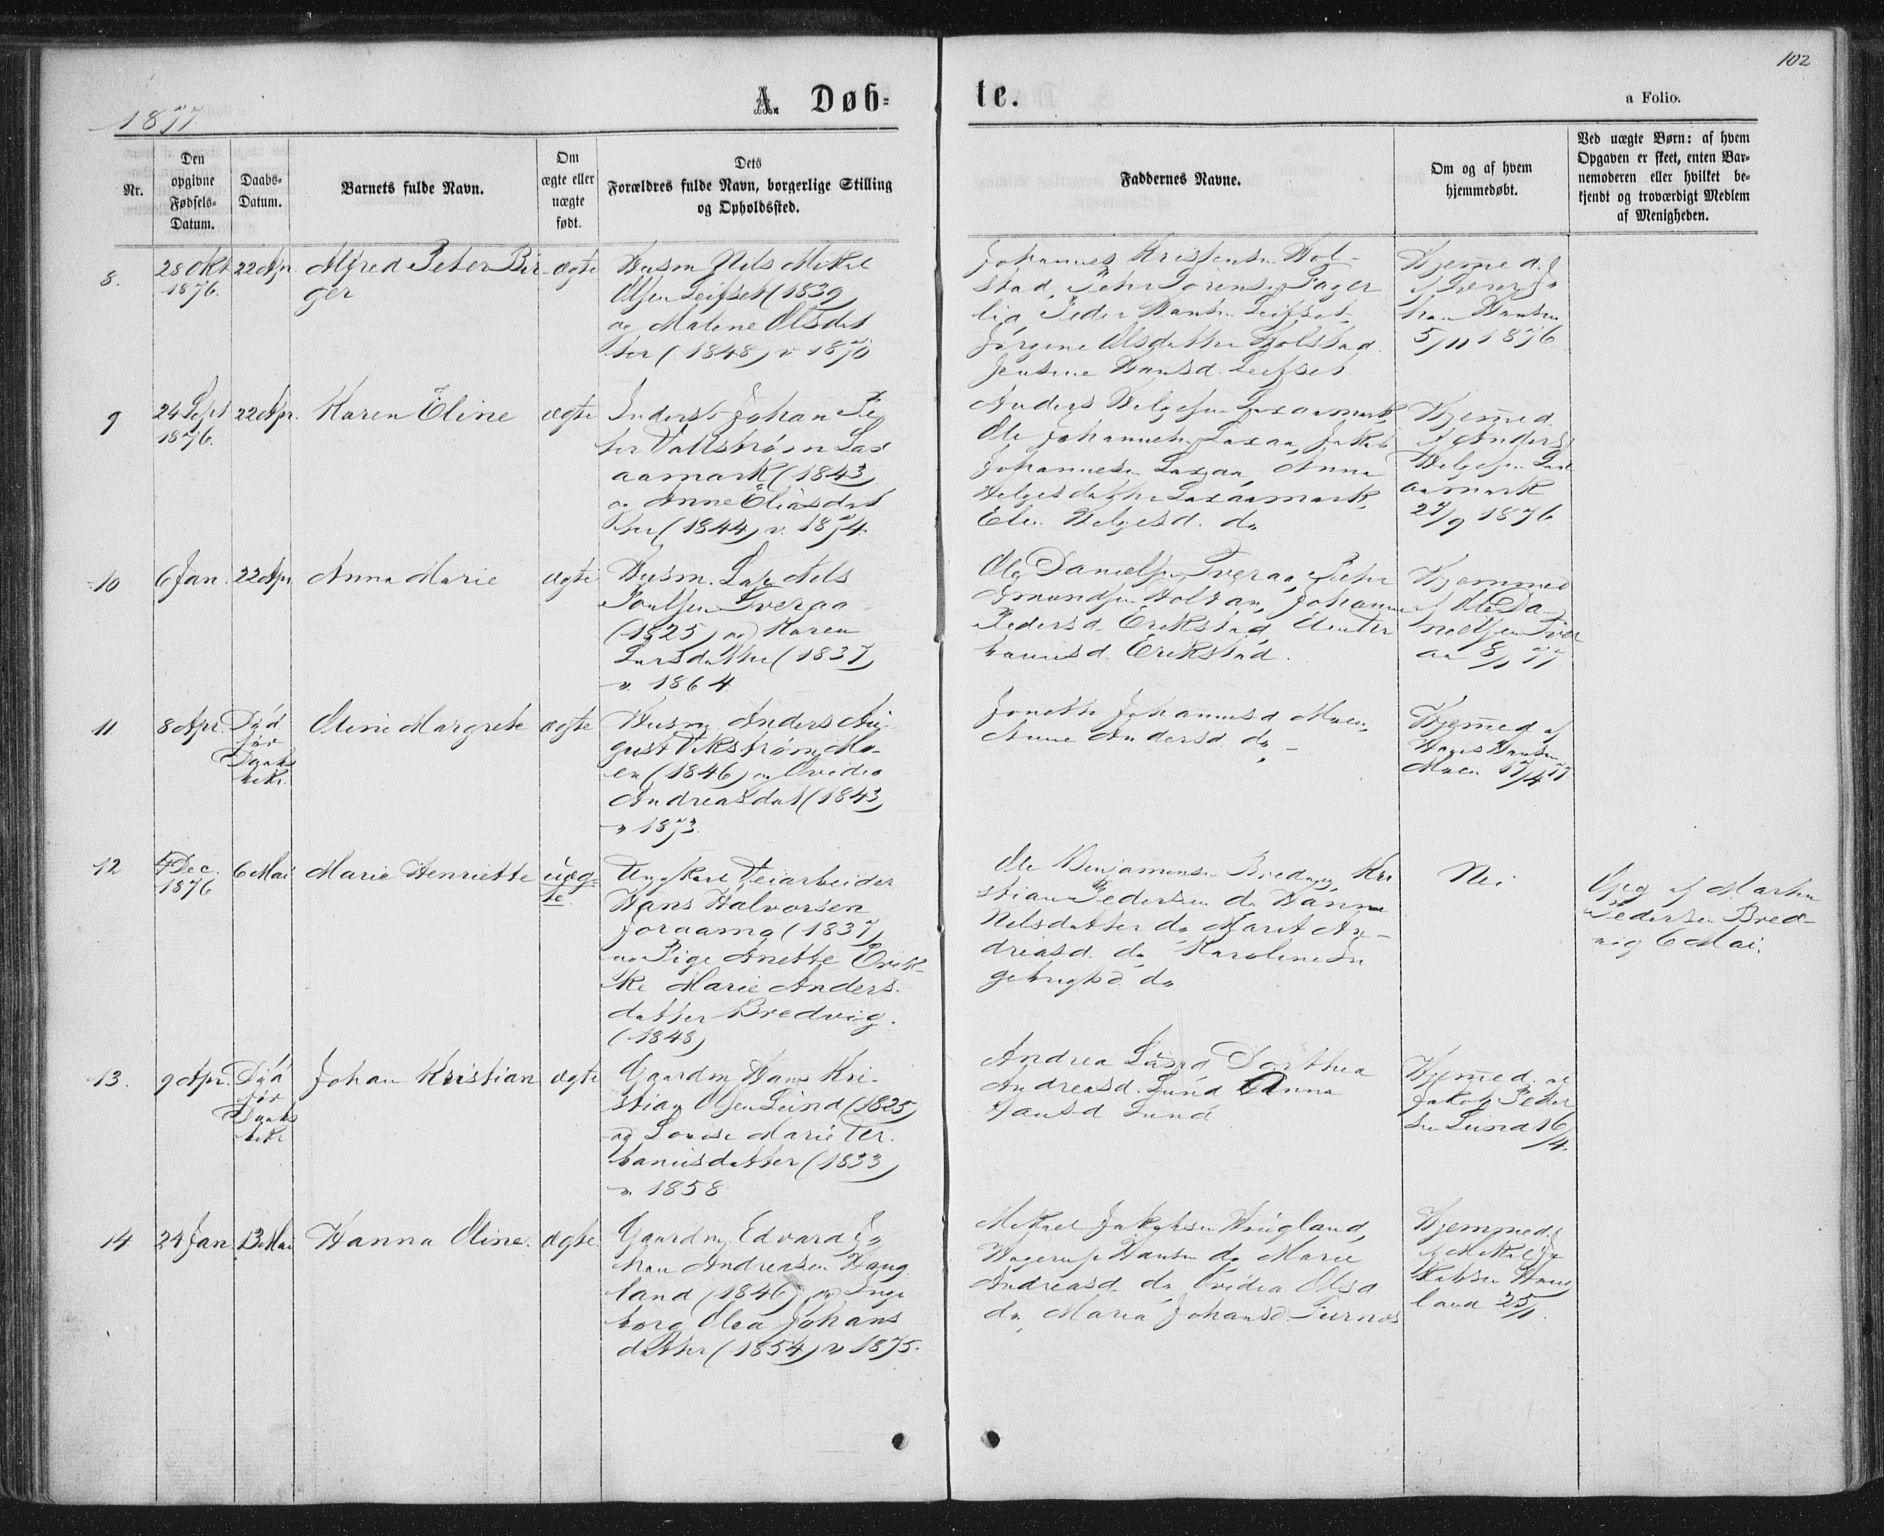 102
1877
A. Døb-
te.
a Folio.
Nr.
Den opgivne Fødsels-Datum.
Daabs-Datum.
Barnets fulde Navn.
Om ægte eller uægte født.
Dets Forældres fulde Navn, borgerlige Stilling og Opholdssted.
Faddernes Navne.
Om og af hvem hjemmedøbt.
Ved uægte Børn: af hvem Opgaven er skeet, enten Barnemoderen eller hvilket bekjendt og troværdigt Medlem af Menigheden.
8.
28 Okt
1876.
22 Apr
Alfred Peter Bir
ger
ægte
Husm Nils Mikal
Olsen Leifset (1839)
og Malene Olsdat
ter (1848) v. 1870
Johannes Kristensen Hol-
stad, Peter Sørensen Fager
lid, Peder Hansen Leifset,
Jørgine Olsdatter Holstad
Jensine Hansd. Leifset
Hjemmed.
5/11 1876
9
24 Sept
1876.
22 Apr.
Karen Eline
ægte
Inderst Johan Pe
ter Vallstrøm Lax
aamark (1843)
og Anne Eliasdat
ter (1844) v. 1874.
Anders Helgesen Laxaamark,
Ole Johannesen Laxaa, Jakob
Johannesen Laxaa, Anna
Helgesdatter Laxaamark,
Elen Helgesd. do
Hjemmed.
af Anders
Helgesen Lax
aamark
27/9 1876
10
6 Jan.
22 Apr
Anna Marie
ægte
Husm. Lap Nils
Poulsen Tveraa
(1825) og Karen
Larsdatter (1837)
v. 1864
Ole Danielsen Tveraa, Peter
Amundsen Holtan, Johanna
Pedersd. Erikstad,
Erikstad.
Hjemmed
af Ole Da-
nielsen Tver
aa 8/1 77
11
8 Apr.
Død
før
Daabs
bekr.
Oline Margrete
ægte
Husm Anders Au-
gust Vikstrøm Mo-
en (1846) og Ovidia
Andreasdat (1843)
v 1873.
Jonette Johannesd Moen,
Anne Andersd. do
Hjemmed af
Hans Hansen
Moen 17/4 77
12
4 Dec.
1876
6 Mai
Marie Henriette
uæg-
te.
Ungkarl Veiarbeider
Hans Halvorsen
(1837)
og Pige Anette Erik-
ke Marie Anders-
datter Bredvig.
(1848)
Ole Benjaminsen Bredvig, Kri
stian Pedersen do Hanna
Nilsdatter do Maret An-
dreasd. do Karoline In
gebrigtsd do
Nei
Opg af
Pedersen Bred-
vig 6 Mai.
13.
9 Apr.
Død
før
Daabs
bekr
Johan Kristian
ægte
Gaardm Hans Kri-
stian Olsen Lund (1825)
og Lovise Marie Ter-
baniesdatter (1833)
v. 1858
Andrea Lund Dorthea
Andreasd. Lund Anna
Hansd Lund
Hjemmed. af
Jakob Peder
sen Lund 16/4.
14
24 Jan.
13 Mai
Hanna Oline.
ægte
Gaardm. Edvard Jo
han Andreasen Haug
land (1846) og Inge
borg Olea Johans
datter (1854) v 1875.
Mikael Jakobsen Haugland,
Hagerup Hansen do Marie
Andreasd. do, Ovidia Olsd
do, Maria Johansd.
Hjemmed.
af Mikal Ja
kobsen Haug
land 25/1.